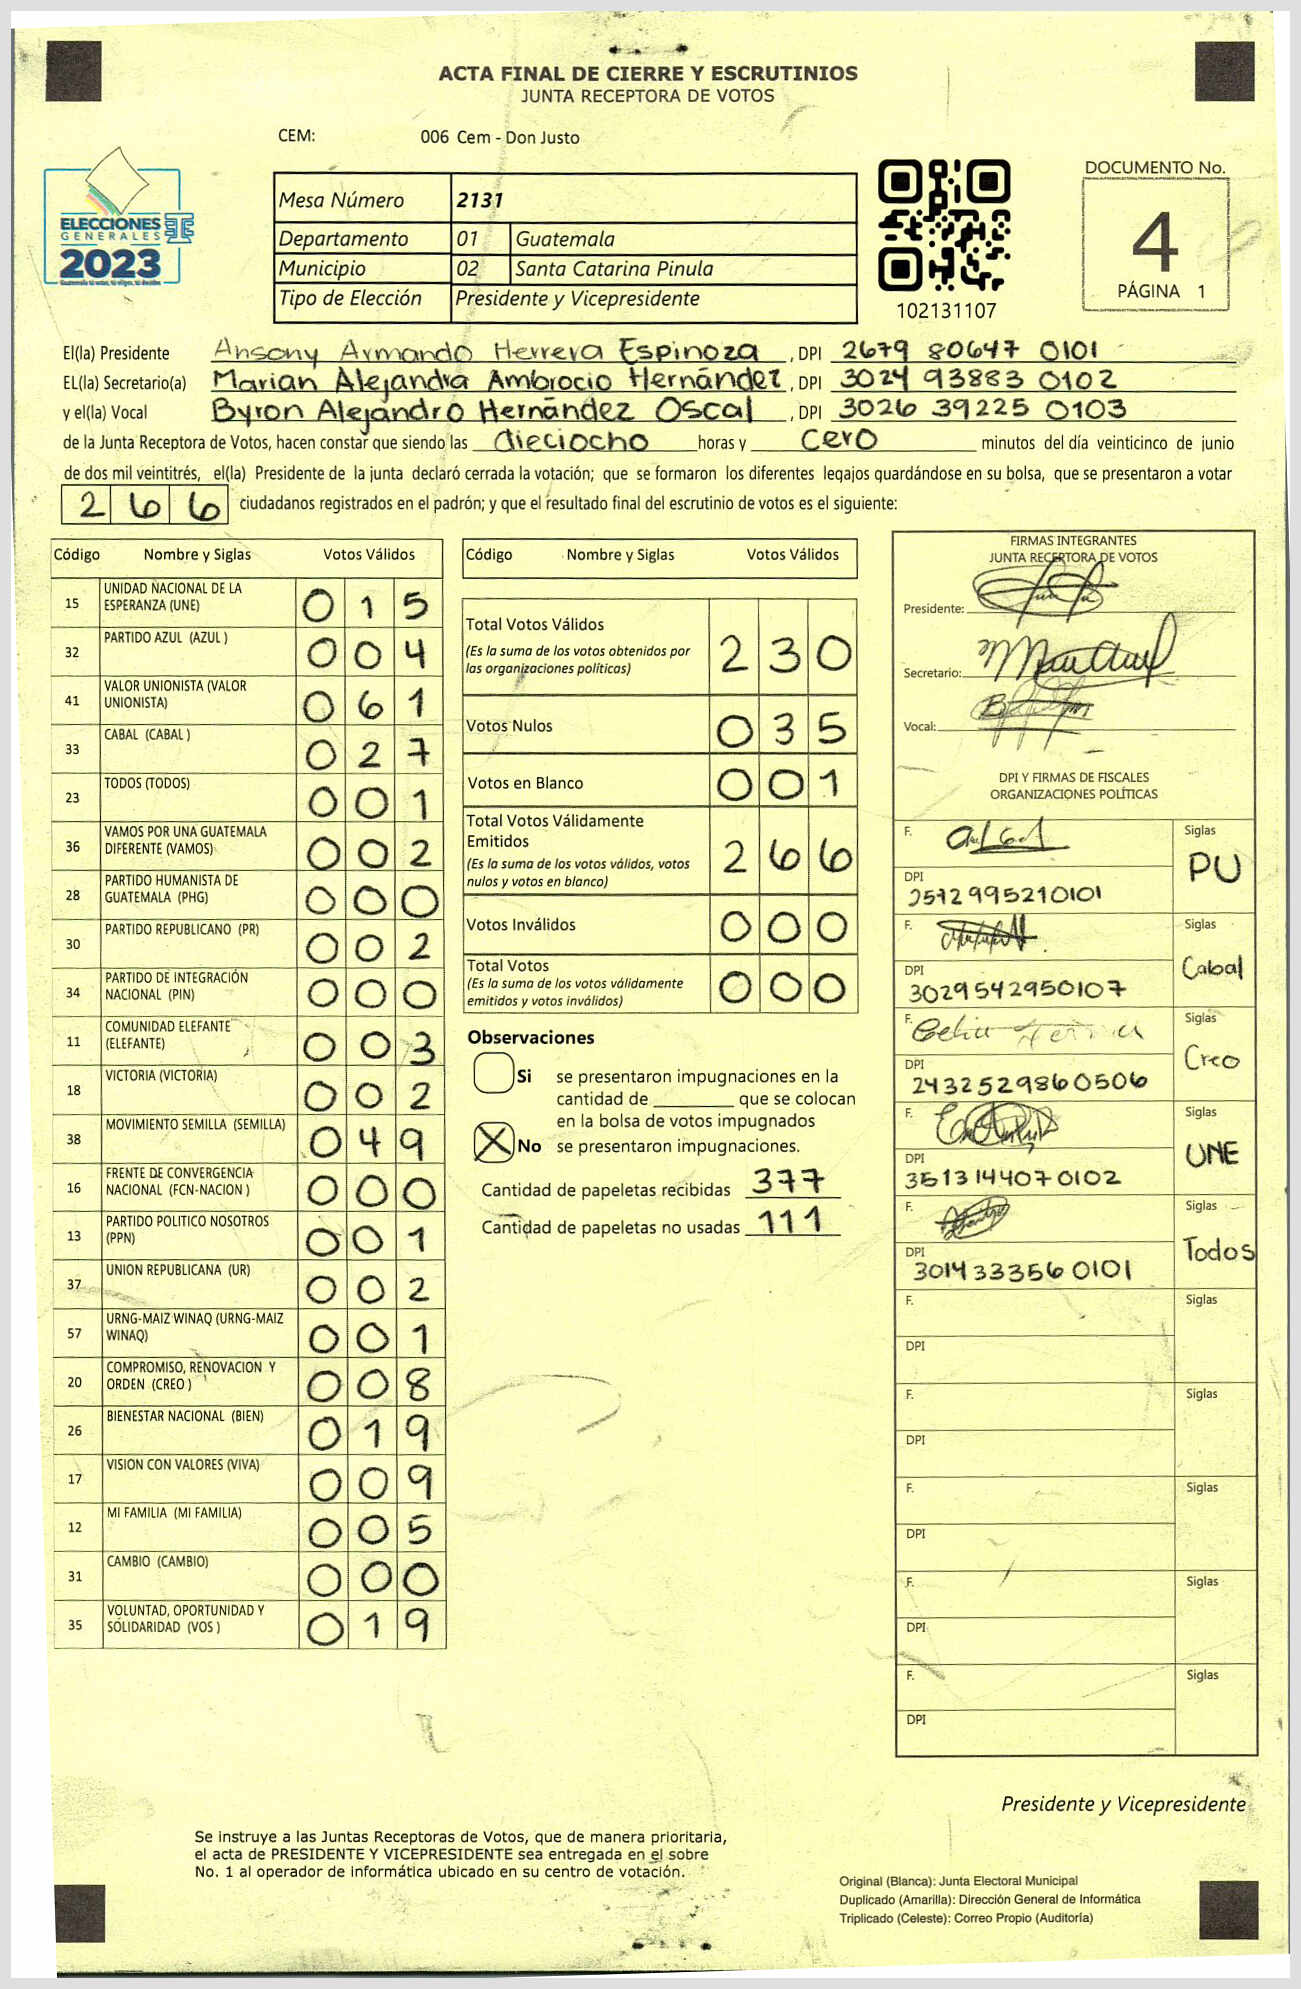 ACTA FINAL DE CIERRE Y ESCRUTINIOS
JUNTA RECEPTORA DE VOTOS
CEM: 006 Cem - Don Justo
ELECCIONES
GENERALES
2023
Mesa Número 2131
Departamento 01 Guatemala
Municipio 02 Santa Catarina Pinula
Tipo de Elección Presidente y Vicepresidente
102131107
DOCUMENTO No.
4
PÁGINA 1
El(la) Presidente Ansony Armando Herrera Espinoza, DPI 2679 80647 0101
EL(la) Secretario(a) Marian Alejandra Ambrocio Hernández, DPI 3024 93883 0102
y el(la) Vocal Byron Alejandro Hernández Oscal, DPI 3026 39225 0103
de la Junta Receptora de Votos, hacen constar que siendo las dieciocho horas y cero minutos del día veinticinco de junio
de dos mil veintitrés, el(la) Presidente de la junta declaró cerrada la votación; que se formaron los diferentes legajos guardándose en su bolsa, que se presentaron a votar
266 ciudadanos registrados en el padrón; y que el resultado final del escrutinio de votos es el siguiente:
Código Nombre y Siglas Votos Válidos
15 UNIDAD NACIONAL DE LA ESPERANZA (UNE) 015
32 PARTIDO AZUL (AZUL ) 004
41 VALOR UNIONISTA (VALOR UNIONISTA) 061
33 CABAL (CABAL ) 027
23 TODOS (TODOS) 001
36 VAMOS POR UNA GUATEMALA DIFERENTE (VAMOS) 002
28 PARTIDO HUMANISTA DE GUATEMALA (PHG) 000
30 PARTIDO REPUBLICANO (PR) 002
34 PARTIDO DE INTEGRACIÓN NACIONAL (PIN) 000
11 COMUNIDAD ELEFANTE (ELEFANTE) 003
18 VICTORIA (VICTORIA) 002
38 MOVIMIENTO SEMILLA (SEMILLA) 049
16 FRENTE DE CONVERGENCIA NACIONAL (FCN-NACION ) 000
13 PARTIDO POLITICO NOSOTROS (PPN) 001
37 UNION REPUBLICANA (UR) 002
57 URNG-MAIZ WINAQ (URNG-MAIZ WINAQ) 001
20 COMPROMISO, RENOVACION Y ORDEN (CREO ) 008
26 BIENESTAR NACIONAL (BIEN) 019
17 VISION CON VALORES (VIVA) 009
12 MI FAMILIA (MI FAMILIA) 005
31 CAMBIO (CAMBIO) 000
35 VOLUNTAD, OPORTUNIDAD Y SOLIDARIDAD (VOS ) 019
Código Nombre y Siglas Votos Válidos
Total Votos Válidos 230
(Es la suma de los votos obtenidos por
las organizaciones políticas)
Votos Nulos 035
Votos en Blanco 001
Total Votos Válidamente
Emitidos 266
(Es la suma de los votos válidos, votos
nulos y votos en blanco)
Votos Inválidos 000
Total Votos 000
(Es la suma de los votos válidamente
emitidos y votos inválidos)
Observaciones
Si se presentaron impugnaciones en la
cantidad de ________ que se colocan
en la bolsa de votos impugnados
X No se presentaron impugnaciones.
Cantidad de papeletas recibidas 377
Cantidad de papeletas no usadas 111
FIRMAS INTEGRANTES
JUNTA RECEPTORA DE VOTOS
Presidente:
Secretario:
Vocal:
DPI Y FIRMAS DE FISCALES
ORGANIZACIONES POLÍTICAS
F. Siglas PU
DPI 2512995210101
F. Siglas Cabal
DPI 3029542950107
F. Siglas Creo
DPI 2432529860506
F. Siglas UNE
DPI 3513144070102
F. Siglas Todos
DPI 3014333560101
F. Siglas
DPI
F. Siglas
DPI
F. Siglas
DPI
F. Siglas
DPI
F. Siglas
DPI
Presidente y Vicepresidente
Se instruye a las Juntas Receptoras de Votos, que de manera prioritaria,
el acta de PRESIDENTE Y VICEPRESIDENTE sea entregada en el sobre
No. 1 al operador de informática ubicado en su centro de votación.
Original (Blanca): Junta Electoral Municipal
Duplicado (Amarilla): Dirección General de Informática
Triplicado (Celeste): Correo Propio (Auditoría)